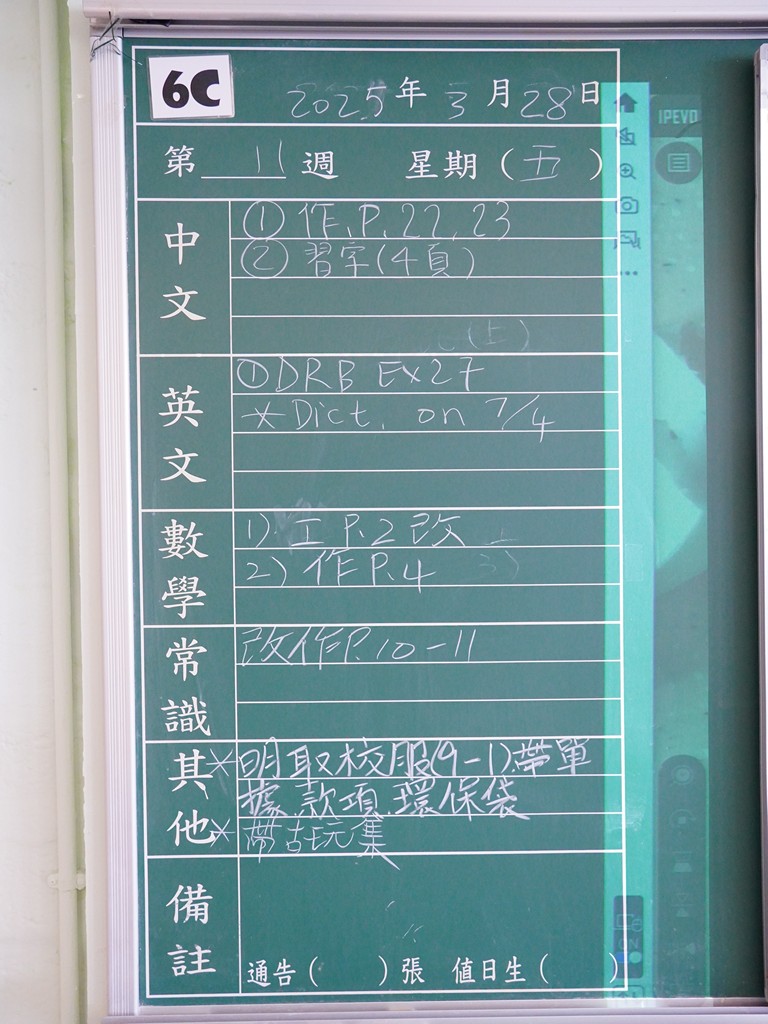 6C
2025年3月28日
第 11 週 星期(五)
中文
① 作.P.22,23
② 習字(4頁)
(上)
英文
① DRB Ex27
* Dict. on 7/4
數學
1). 工 P.2 改
2) 作 P.4
3)
常識
改作P.10-11
其他
* 明取校服(9-1).帶單
據、款項、環保袋
* 帶古玩集
備註
通告( )張 值日生( )
IPEVO
ON